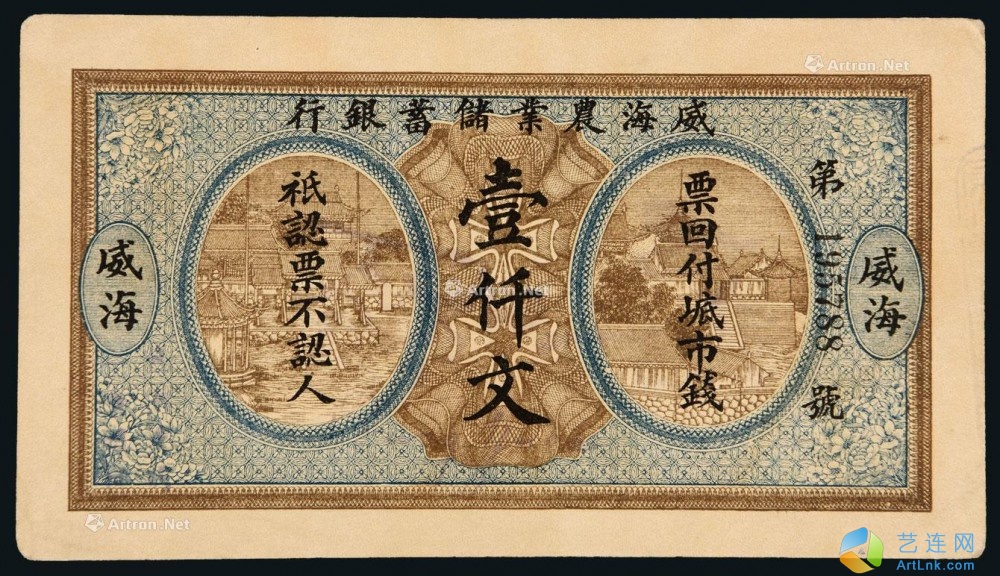 威海農業儲蓄銀行
第195788號
票回付塬市錢
壹仟文
祇認票不認人
威海
威海
Artron.Net
Artron.Net
Artron.Net
艺连网
ArtLnk.com